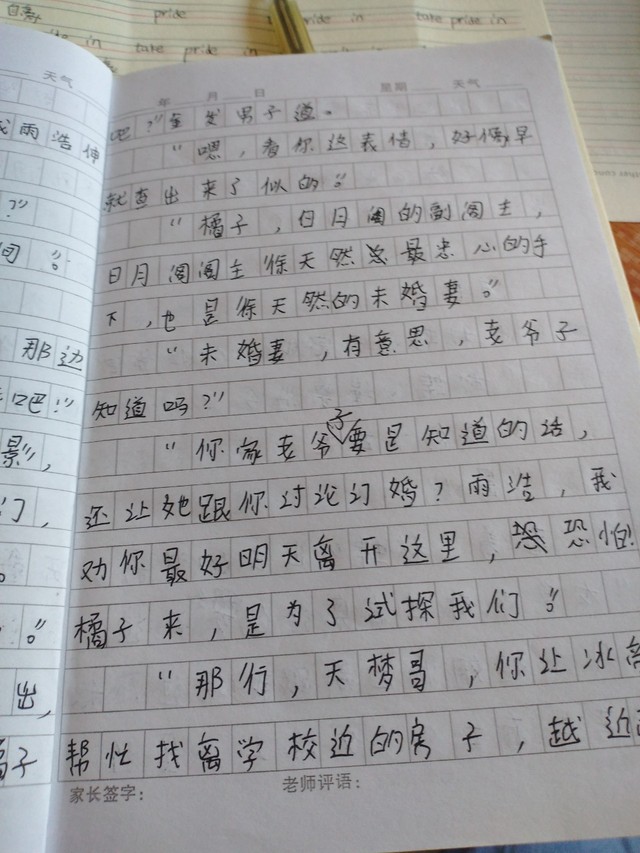 自豪
pride
take pride in
take pride in
in
take pride in
天气
年 月 日 星期 天气
雨浩伸
?"
。"
那边
吧!"
影,
门,
。
。"
出,
子
吧?"金发男子道。
"嗯,看你这表情,好像早
就查出来了似的。"
"橘子,日月阁的副阁主,
日月阁阁主徐天然总最忠心的手
下,也是徐天然的未婚妻。"
"未婚妻,有意思,老爷子
知道吗?"
"你家老爷子要是知道的话,
还让她跟你讨论订婚?雨浩,我
劝你最好明天离开这里,恐恐怕!
橘子来,是为了试探我们。"
"那行,天梦哥,你让冰
帮忙找离学校近的房子,越近
家长签字: 老师评语: